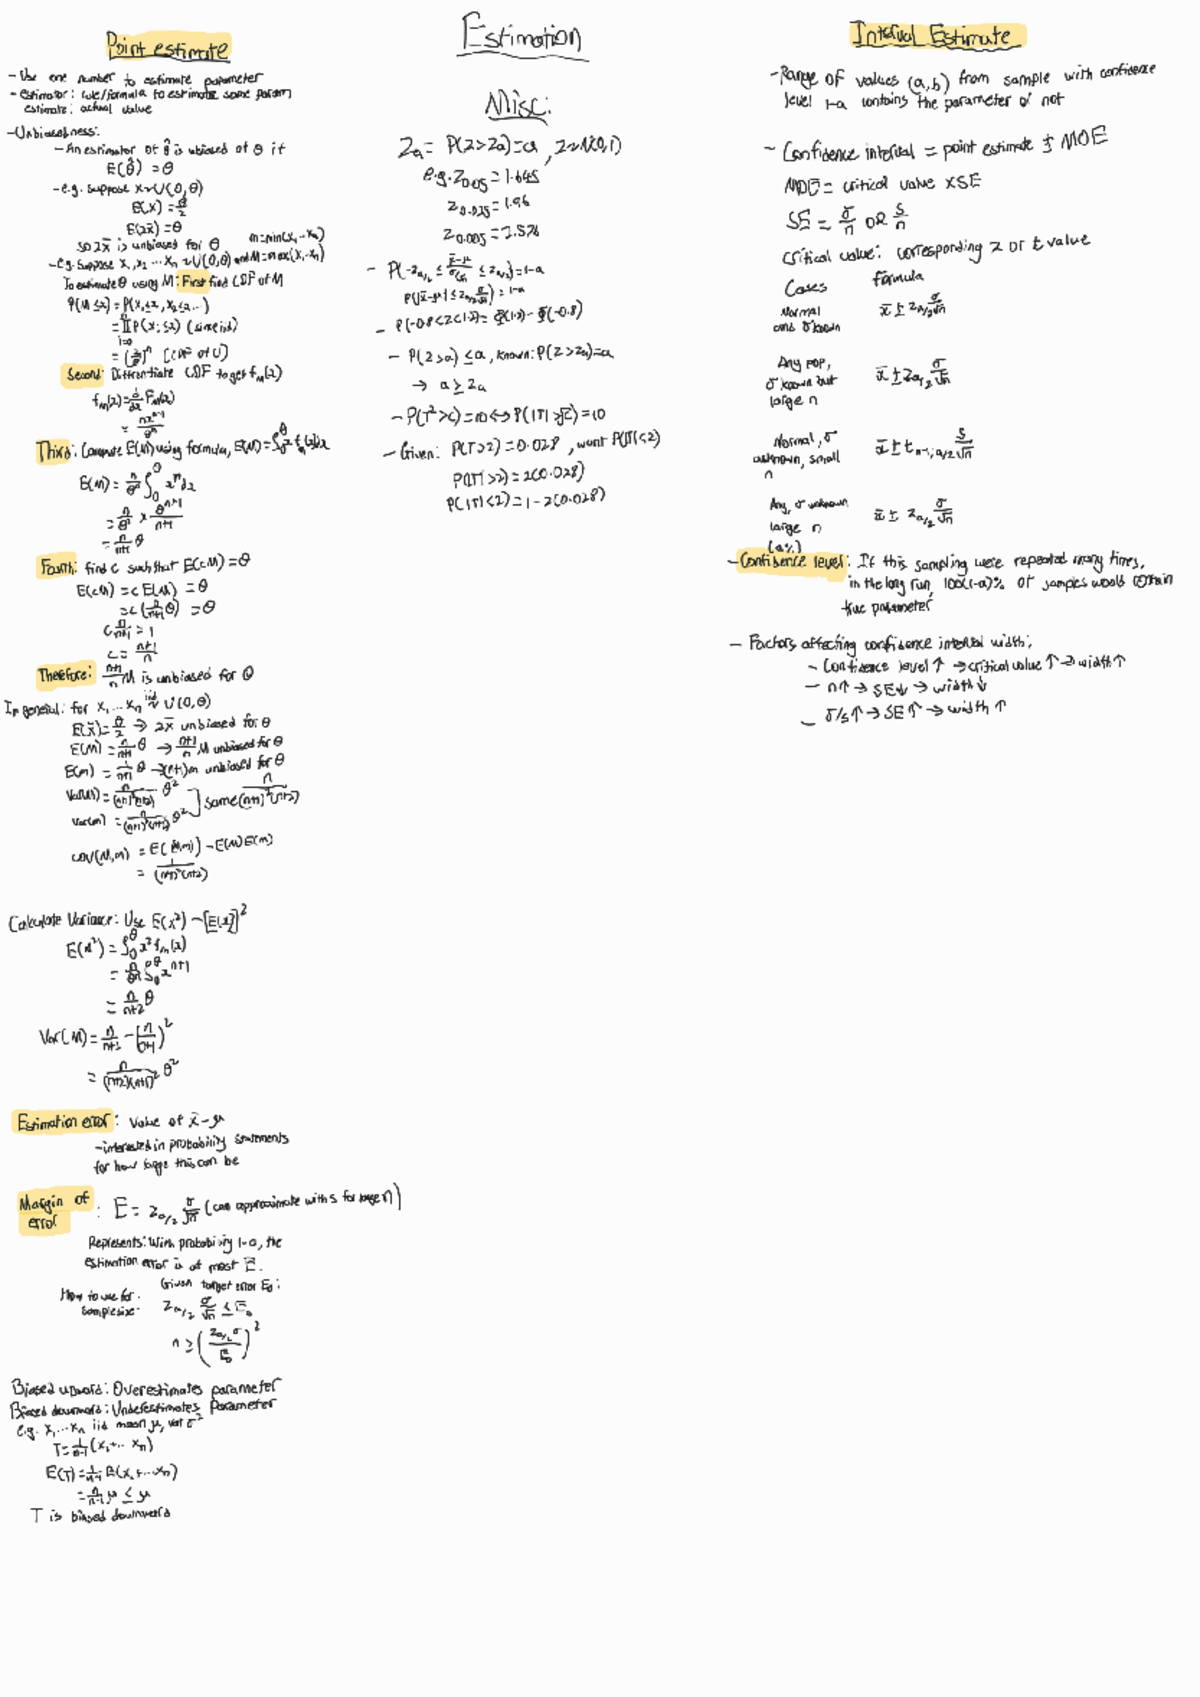 Estimation
Point estimate
- Use one number to estimate parameter
- estimator: rule/formula to estimate some param
estimate: actual value
- Unbiasedness:
- An estimator of θ̂ is ubiased of θ if
E(θ̂) = θ
- e.g. suppose X~U(0,θ)
E(X) = θ/2
E(2x̄) = θ
so 2x̄ is unbiased for θ
m = min(x₁-xₙ)
- e.g. suppose x₁, x₂ ... xₙ ~ U(0,θ) and M = max(x₁-xₙ)
To estimate θ using M: First find CDF of M
P(M ≤ x) = P(x₁≤x, x₂≤x...)
= ∏P(xᵢ≤x) (since iid)
= (x/θ)ⁿ [CDF of U]
Second: Differentiate CDF to get fₘ(x)
fₘ(x) = d/dx Fₘ(x)
= nxⁿ⁻¹/θⁿ
Third: Compute E(M) using formula, E(M) = ∫₀^θ x fₘ(x)dx
E(M) = n/θⁿ ∫₀^θ xⁿ dx
= n/θⁿ × θⁿ⁺¹/n+1
= n/n+1 θ
Fourth: find c such that E(cM) = θ
E(cM) = c E(M) = θ
= c(n/n+1 θ) = θ
c n/n+1 = 1
c = n+1/n
Therefore: n+1/n M is unbiased for θ
In general: for x₁ ... xₙ iid~ U(0,θ)
E(x̄) = θ/2 → 2x̄ unbiased for θ
E(M) = n/n+1 θ → n+1/n M unbiased for θ
E(m) = 1/n+1 θ → (n+1)m unbiased for θ
Var(M) = n/(n+1)²(n+2) θ²
Var(m) = n/(n+1)²(n+2) θ² ] same n/(n+1)²(n+2)
cov(M,m) = E(M,m) - E(M)E(m)
= 1/(n+1)²(n+2)
Calculate Variance: Use E(x²) - [E(x)]²
E(M²) = ∫₀^θ x² fₘ(x)
= n/θⁿ ∫₀^θ xⁿ⁺¹
= n/n+2 θ
Var(M) = n/n+2 - (n/n+1)²
= n/(n+2)(n+1)² θ²
Estimation error: value of x̄ - μ
- interested in probability statements
for how large this can be
Margin of error: E = z_a/2 σ/√n (can approximate with s for large n)
Represents: With probability 1-a, the
estimation error is at most E.
How to use for sample size: Given target error E₀:
z_a/2 σ/√n ≤ E₀
n ≥ (z_a/2 σ/E₀)²
Biased upward: Overestimates parameter
Biased downward: Underestimates Parameter
e.g. x₁ ... xₙ iid mean μ, var σ²
T = 1/n-1 (x₁+... xₙ)
E(T) = 1/n-1 E(x₁+...xₙ)
= n/n-1 μ ≤ μ
T is biased downward
Misc:
Zₐ = P(Z > Zₐ) = a, Z~N(0,1)
e.g. z₀.₀₅ = 1.645
z₀.₀₂₅ = 1.96
z₀.₀₀₅ = 2.576
- P(-z_a/2 ≤ x̄-μ/σ/√n ≤ z_a/2) = 1-a
P(|x̄-μ| ≤ z_a/2 σ/√n) = 1-a
- P(-0.8<Z<1.2) = Φ(1.2) - Φ(-0.8)
- P(Z>a) ≤ a, known: P(Z > Zₐ) = a
→ a ≥ zₐ
- P(T² > c) = 10 ⟺ P(|T| > √c) = 10
- Given: P(T>2) = 0.028, want P(|T|<2)
P(|T|>2) = 2(0.028)
P(|T|<2) = 1 - 2(0.028)
Interval Estimate
- Range of values (a,b) from sample with confidence
level 1-a contains the parameter or not
- Confidence interval = point estimate ± MOE
MOE = critical value × SE
SE = σ/n OR s/n
Critical value: corresponding z or t value
Cases formula
Normal and σ known x̄ ± z_a/2 σ/√n
Any pop, σ known but large n x̄ ± z_a/2 σ/√n
Normal, σ unknown, small n x̄ ± t_n-1, a/2 s/√n
Any, σ unknown large n x̄ ± z_a/2 σ/√n
(a%)
- Confidence level: If this sampling were repeated many times,
in the long run, 100(1-a)% of samples would contain
true parameter
- Factors affecting confidence interval width:
- Confidence level ↑ → critical value ↑ → width ↑
- n↑ → SE↓ → width ↓
- σ/s↑ → SE↑ → width ↑